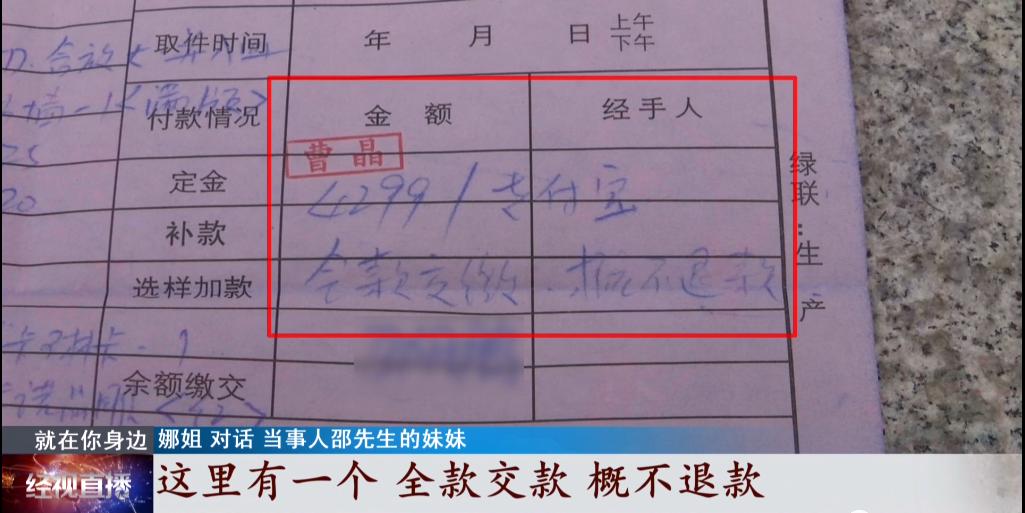 取件时间 年 月 日 上午
下午
付款情况 金额 经手人
曹晶
定金 4299 / 支付宝
补款
选样加款 全款交缴，概不退款
余额缴交
绿联：生产
就在你身边 娜姐 对话 当事人邵先生的妹妹
经视直播
这里有一个 全款交款 概不退款